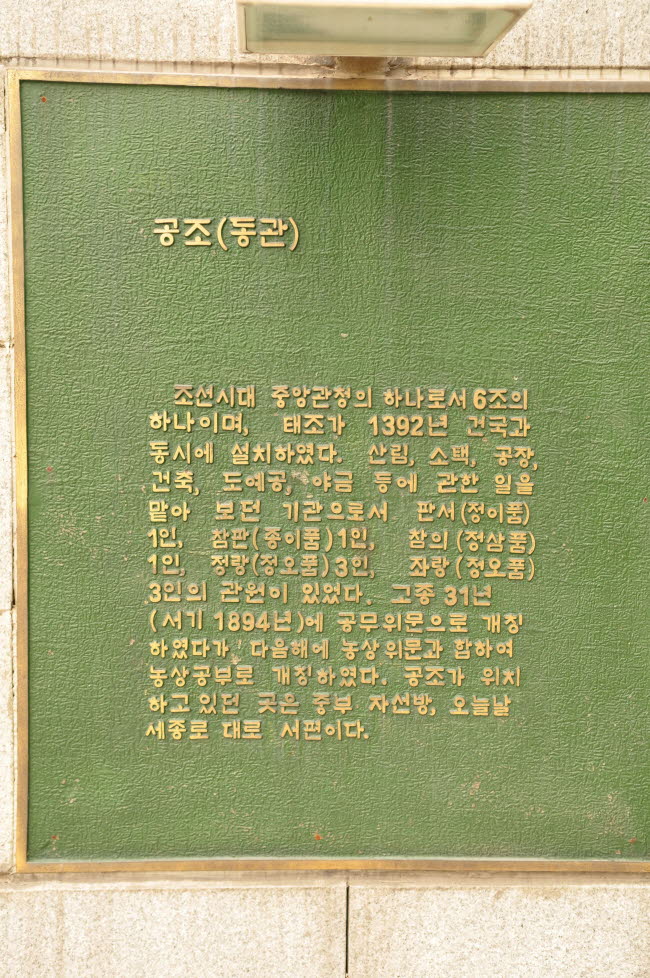 공조(동관)
조선시대 중앙관청의 하나로서 6조의
하나이며, 태조가 1392년 건국과
동시에 설치하였다. 산림, 소택, 공장,
건축, 도예공, 야금 등에 관한 일을
맡아 보던 기관으로서 판서(정이품)
1인, 참판(종이품)1인, 참의(정삼품)
1인, 정랑(정오품)3인, 좌랑(정오품)
3인의 관원이 있었다. 고종 31년
(서기 1894년)에 공무위문으로 개칭
하였다가, 다음해에 농상위문과 합하여
농상공부로 개칭하였다. 공조가 위치
하고 있던 곳은 중부 자선방, 오늘날
세종로 대로 서편이다.